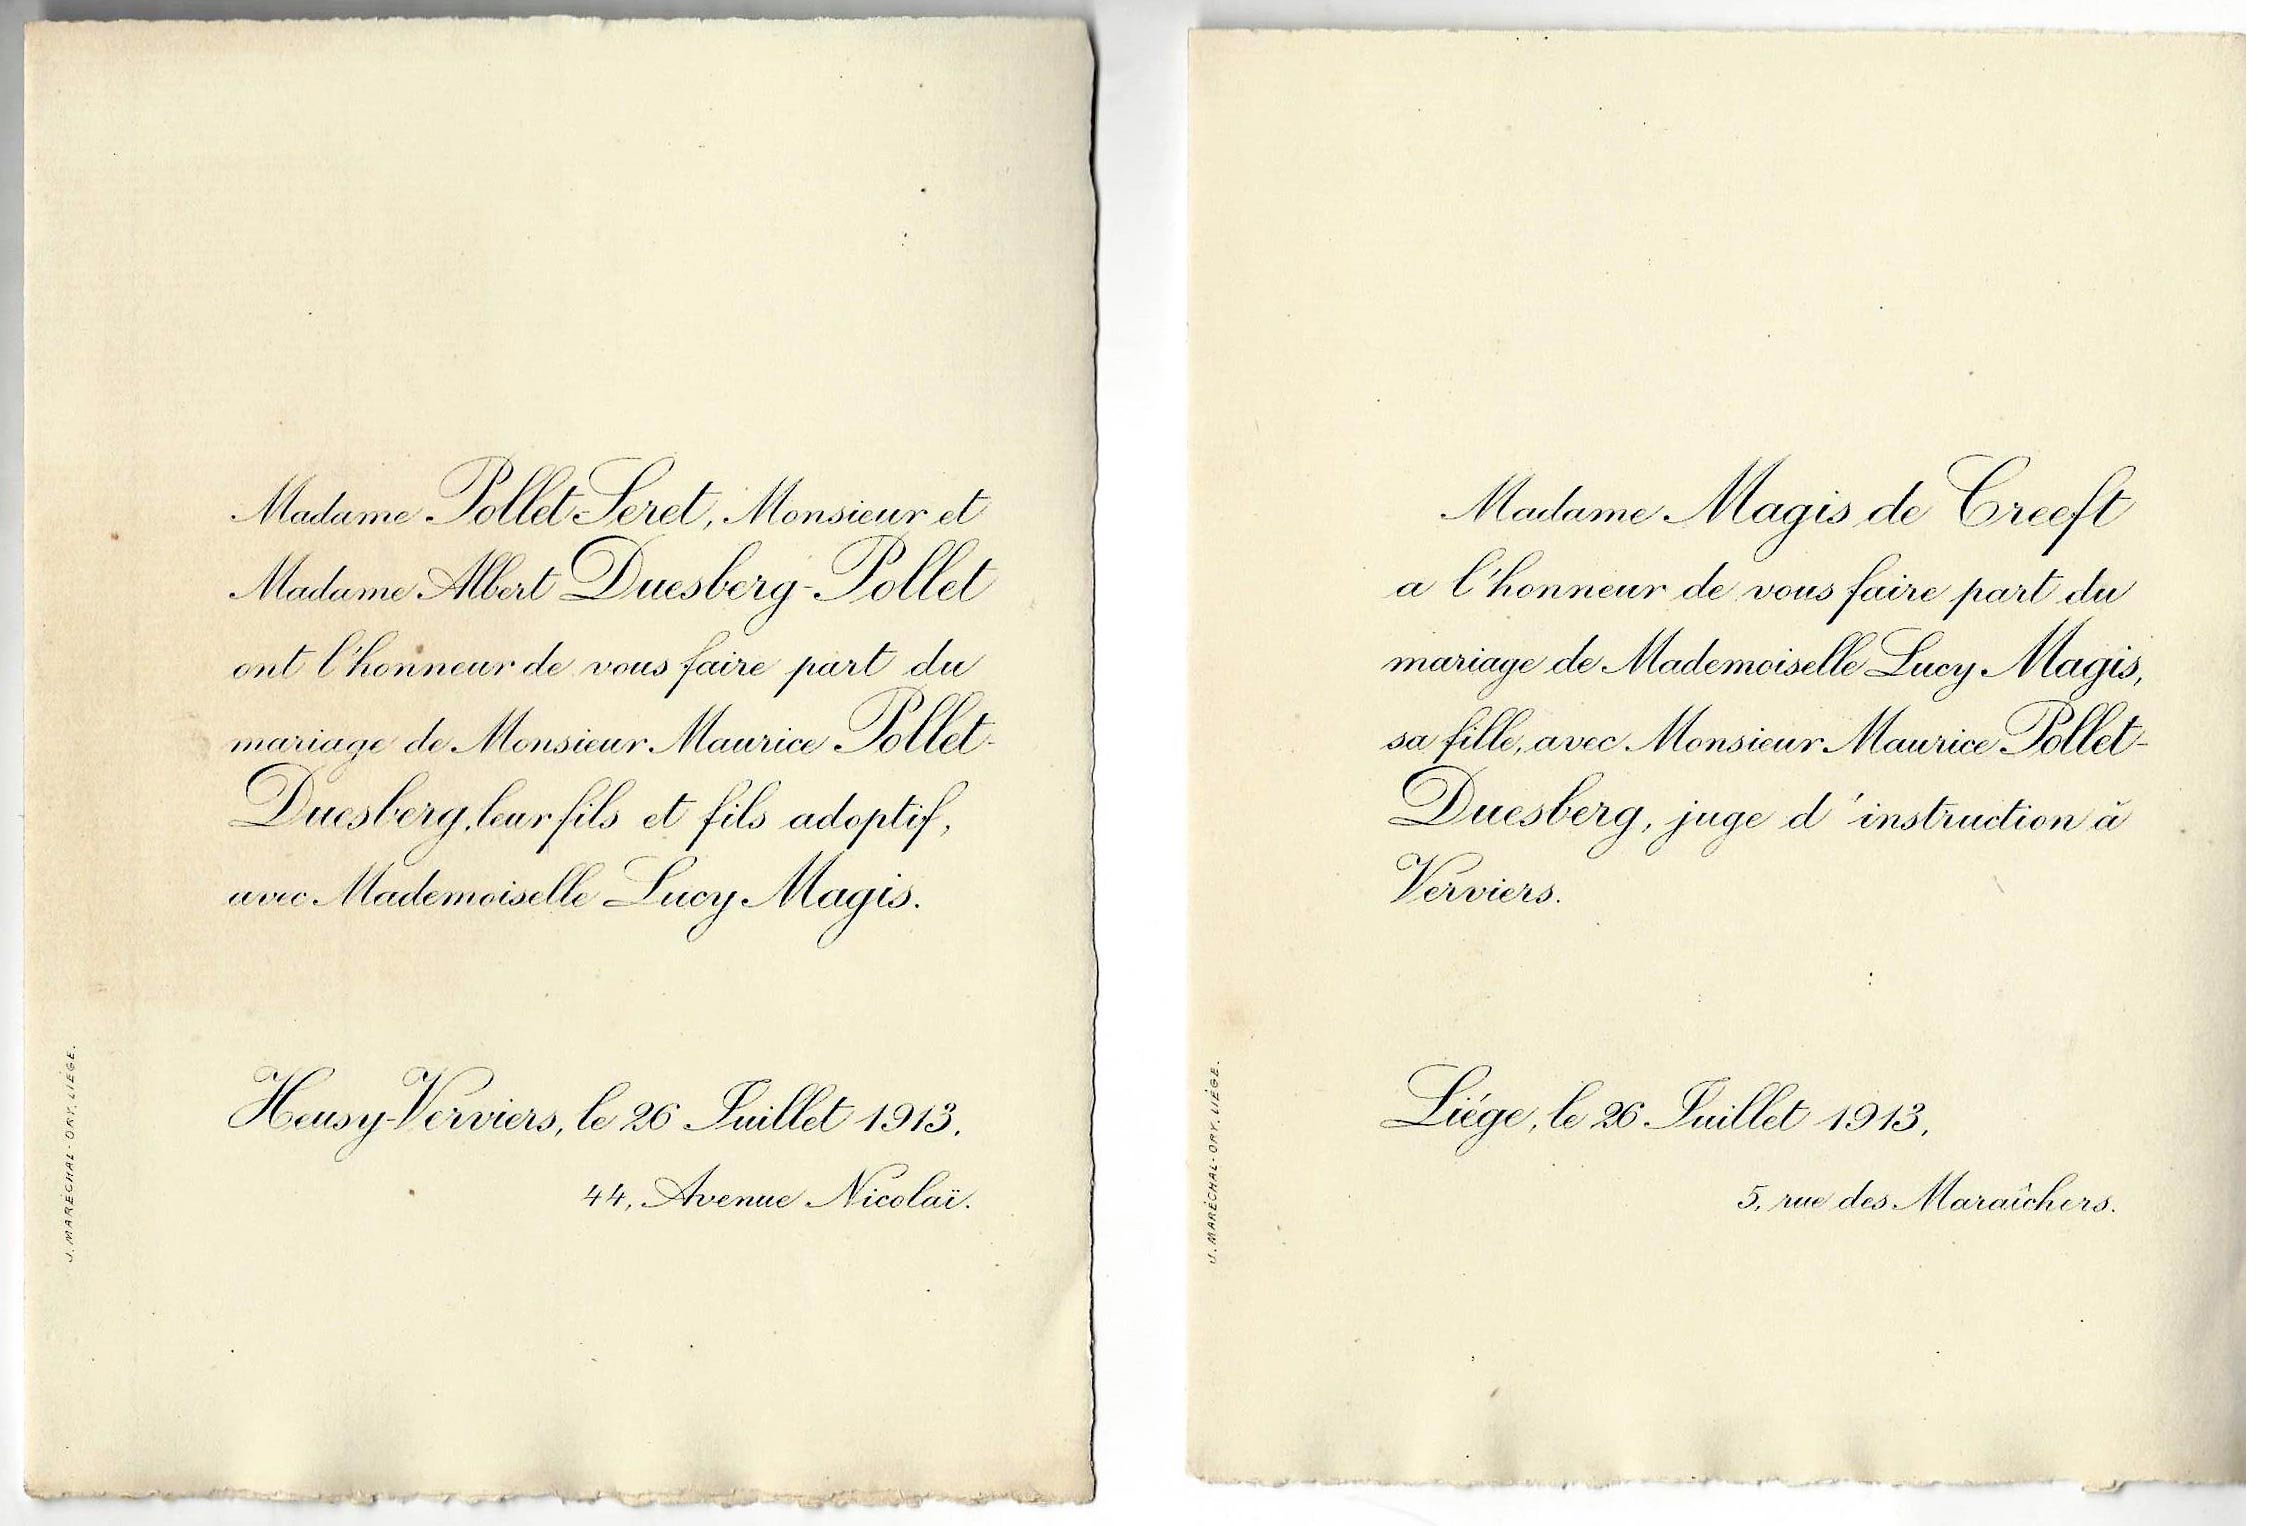 Madame Pollet-Seret, Monsieur et
Madame Albert Duesberg-Pollet
ont l'honneur de vous faire part du
mariage de Monsieur Maurice Pollet-
Duesberg, leur fils et fils adoptif,
avec Mademoiselle Lucy Magis.
Heusy-Verviers, le 26 Juillet 1913.
44, Avenue Nicolaï.
J. MARÉCHAL-ORY, LIÈGE.
Madame Magis de Creeft
a l'honneur de vous faire part du
mariage de Mademoiselle Lucy Magis,
sa fille, avec Monsieur Maurice Pollet-
Duesberg, juge d'instruction à
Verviers.
Liége, le 26 Juillet 1913.
5, rue des Maraîchers.
J. MARÉCHAL-ORY, LIÈGE.